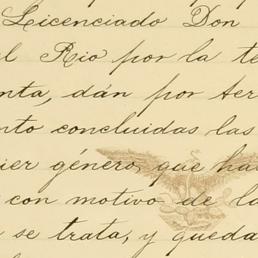 Licenciado Don
l Rio por la te
nta, dán por ter
nto concluidas las
ier género, que ha
con motivo de la
se trata, y queda